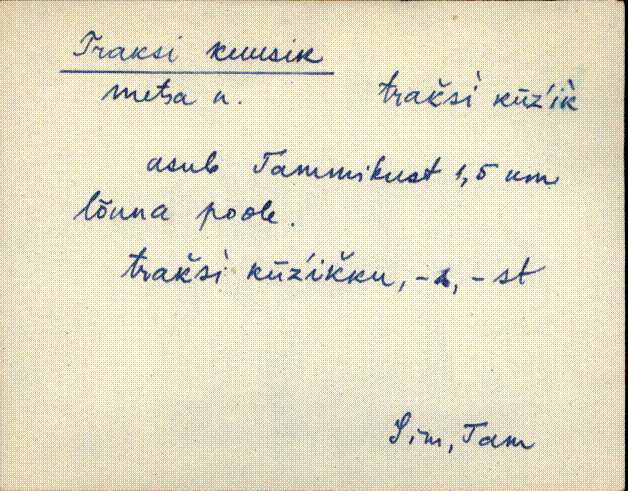 Traksi kuusik
metsa n. trakšì kūz'ìk
asub Tammikust 1,5 km
lõuna poole.
trakšì kūz'ikku, -s, -st
Sim, Tam